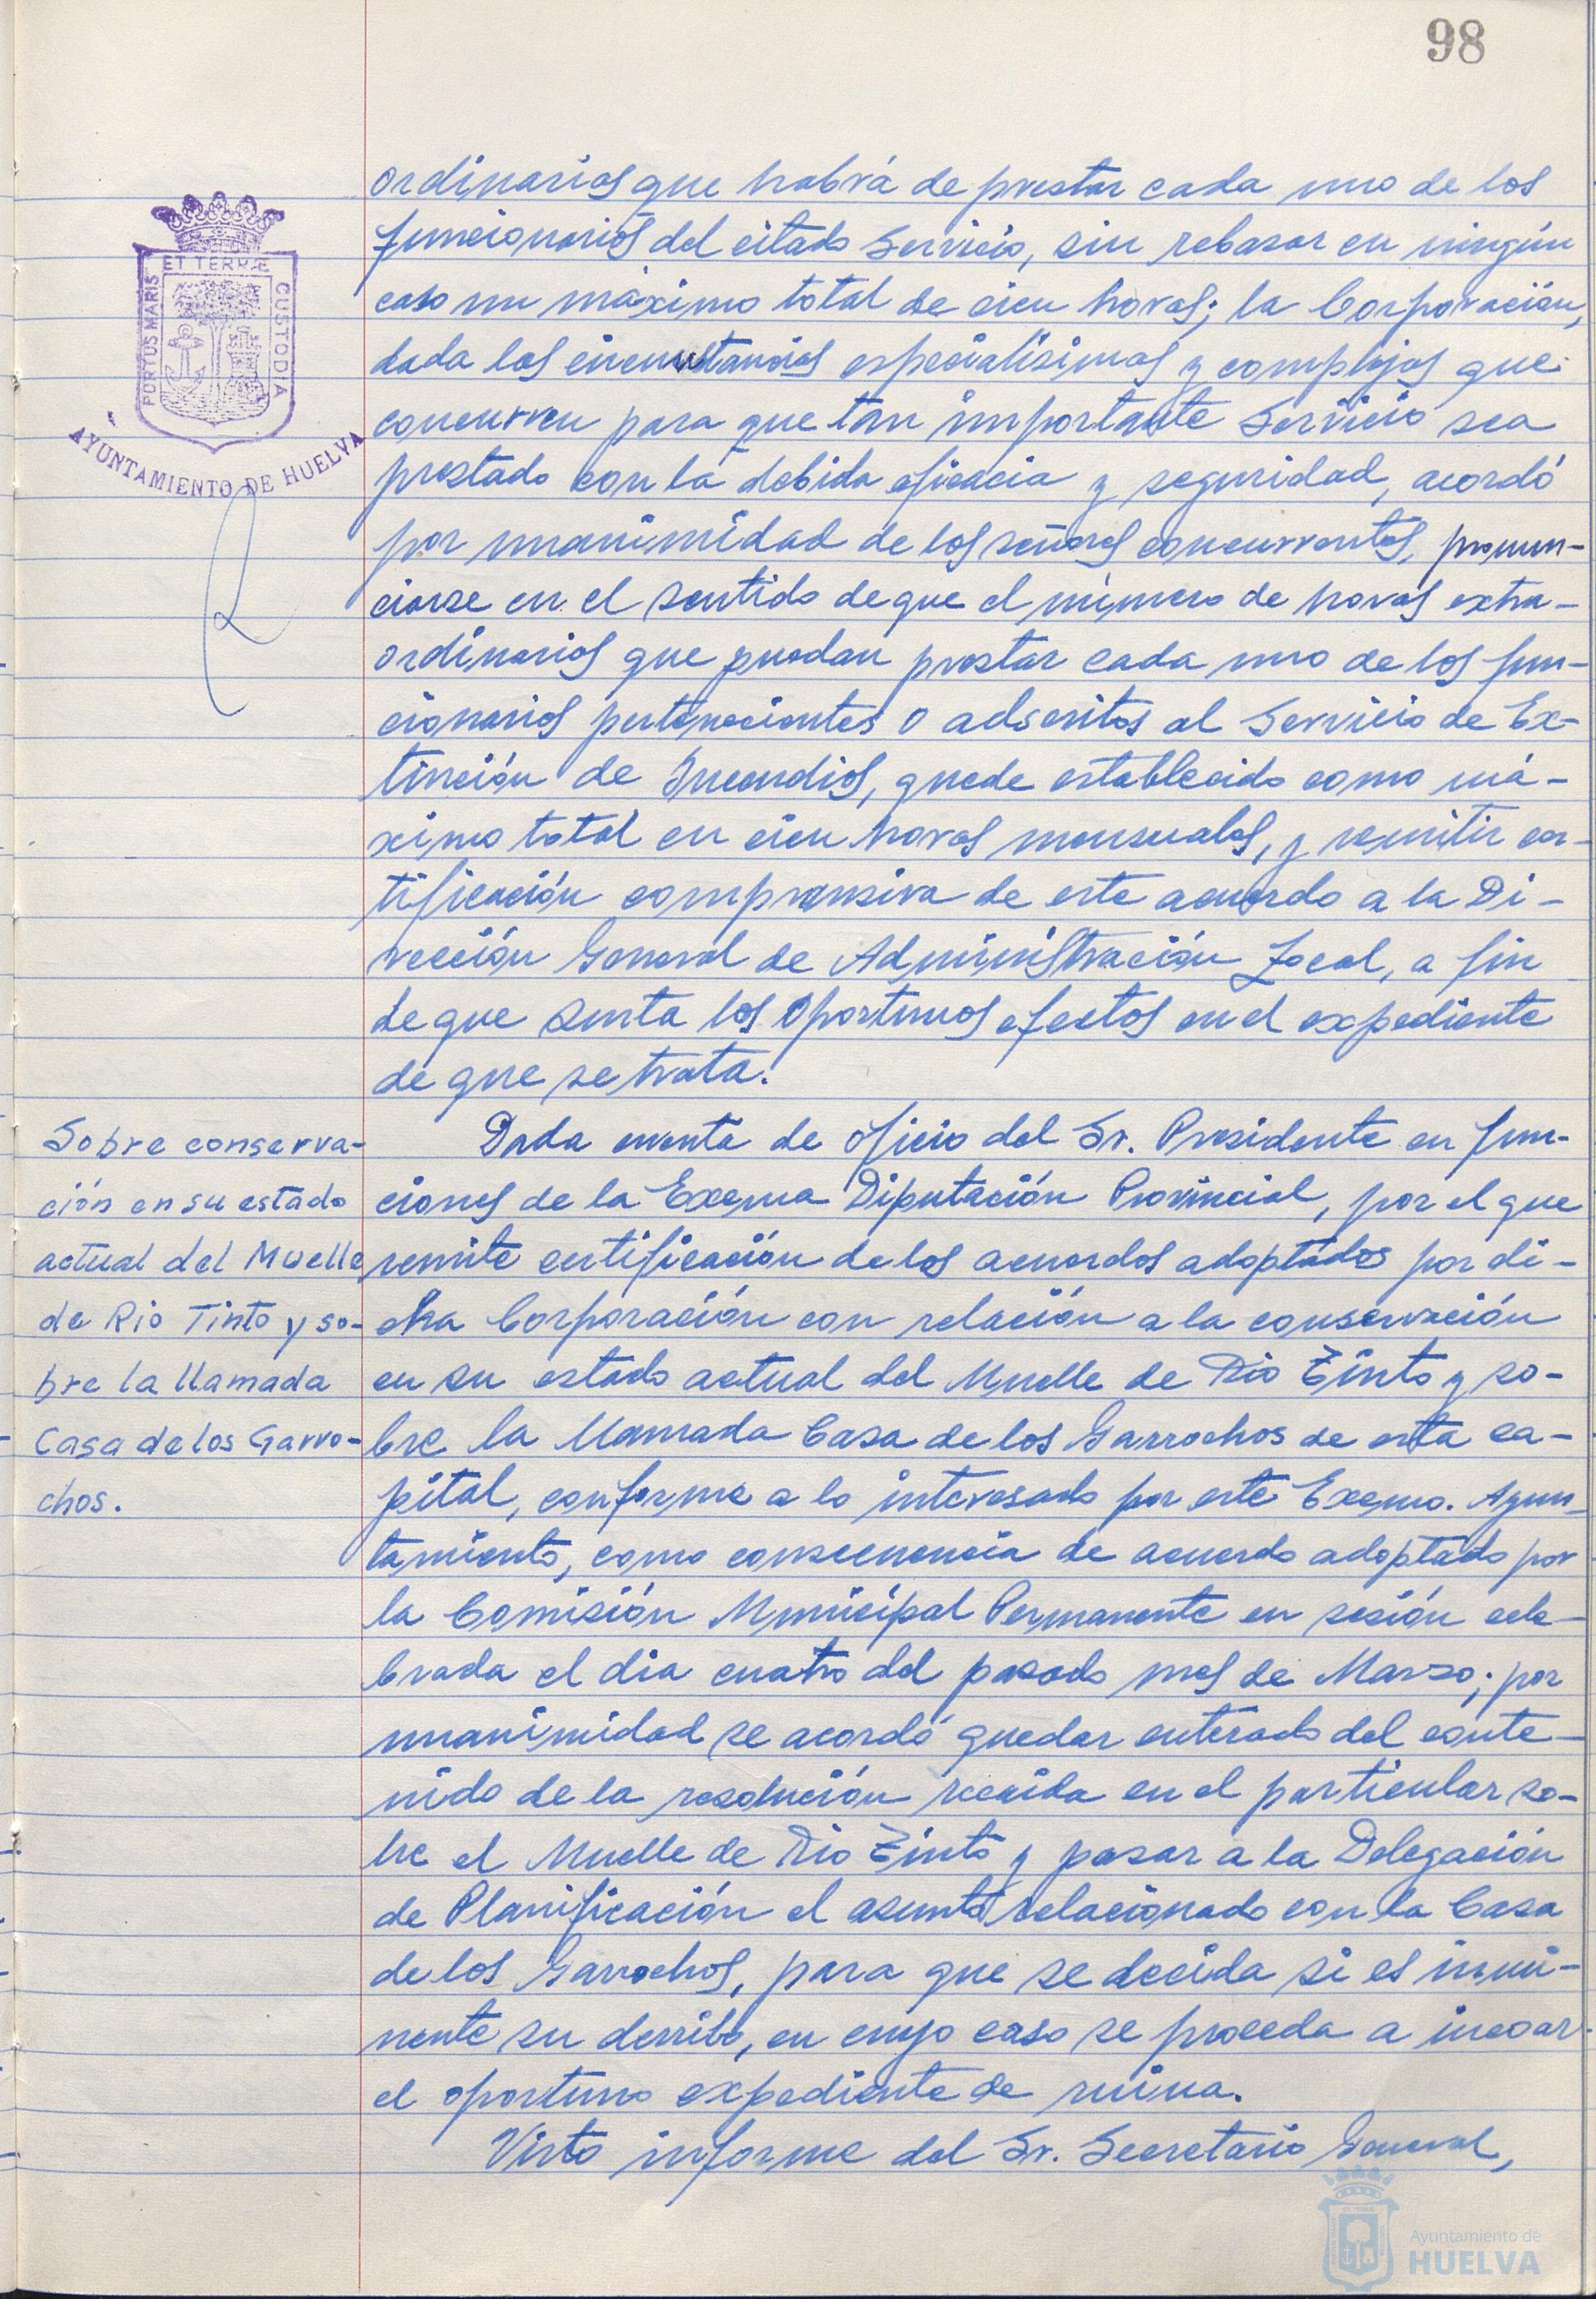 98
ordinarias que habrá de prestar cada uno de los
funcionarios del citado Servicio, sin rebasar en ningún
caso un máximo total de cien horas; la Corporación,
dada las circunstancias especialísimas y complejas que
concurren para que tan importante Servicio sea
prestado con la debida eficacia y seguridad, acordó
por unanimidad de los señores concurrentes, pronun-
ciarse en el sentido de que el número de horas extra-
ordinarias que puedan prestar cada uno de los fun-
cionarios pertenecientes o adscritos al Servicio de Ex-
tinción de Incendios, quede establecido como má-
ximo total en cien horas mensuales, y remitir cer-
tificación comprensiva de este acuerdo a la Di-
rección General de Administración Local, a fin
de que surta los oportunos efectos en el expediente
de que se trata.
PORTUS MARIS
ET TERRÆ
CUSTODIA
AYUNTAMIENTO DE HUELVA
Sobre conserva-
ción en su estado
actual del Muelle
de Rio Tinto y so-
bre la llamada
Casa de los Garro-
chos.
Dada cuenta de oficio del Sr. Presidente en fun-
ciones de la Excma Diputación Provincial, por el que
remite certificación de los acuerdos adoptados por di-
cha Corporación con relación a la conservación
en su estado actual del Muelle de Rio Tinto y so-
bre la llamada Casa de los Garrochos de esta ca-
pital, conforme a lo interesado por este Excmo. Ayun-
tamiento, como consecuencia de acuerdo adoptado por
la Comisión Municipal Permanente en sesión cele-
brada el dia cuatro del pasado mes de Marzo; por
unanimidad se acordó quedar enterado del conte-
nido de la resolución recaida en el particular so-
bre el Muelle de Rio Tinto y pasar a la Delegación
de Planificación el asunto relacionado con la Casa
de los Garrochos, para que se decida si es inmi-
nente su derribo, en cuyo caso se proceda a incoar
el oportuno expediente de ruina.
Visto informe del Sr. Secretario General,
Ayuntamiento de
HUELVA